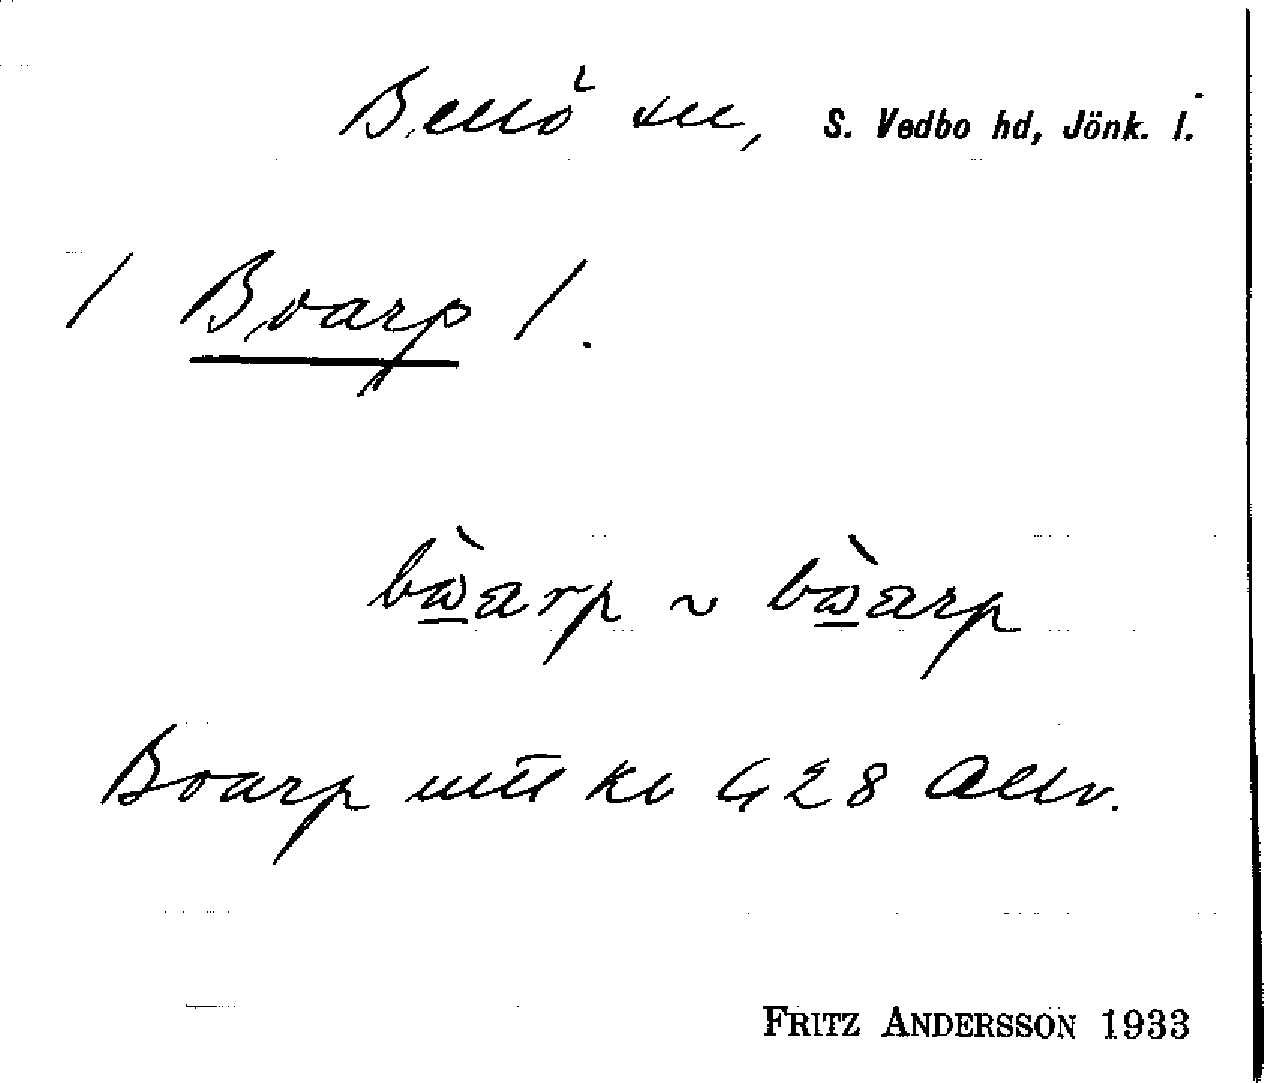 Bellö sn, S. Vedbo hd, Jönk. l.
/ Boarp /.
bὼarp ~ bὼarp
Boarp utt kv 428 Allv.
FRITZ ANDERSSON 1933